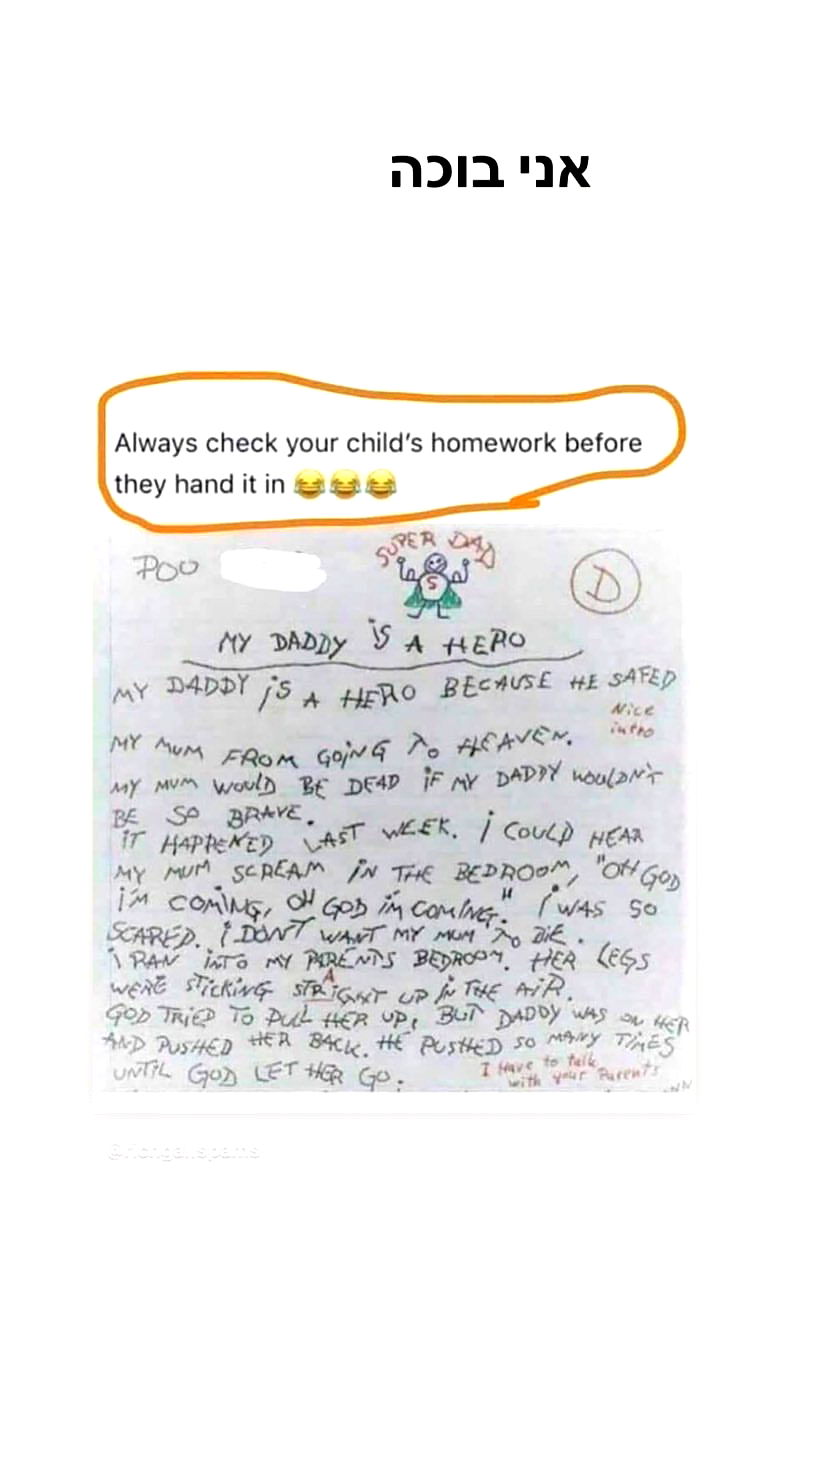 אני בוכה
Always check your child's homework before
they hand it in 😂😂😂
POO
SUPER DAD
S
D
MY DADDY iS A HERO
MY DADDY iS A HERO BECAUSE HE SAFED
Nice
intro
MY MUM FROM GOiNG TO HEAVEN.
MY MUM WOULD BE DEAD iF MY DADDY WOULDN'T
BE SO BRAVE.
iT HAPPENED LAST WEEK. i COULD HEAR
MY MUM SCREAM iN THE BEDROOM, "OH GOD
i'M COMiNG, OH GOD iM COMiNG." i WAS SO
SCARED. i DON'T WANT MY MUM TO DiE.
i RAN iNTO MY PARENTS BEDROOM. HER LEGS
A
WERE STiCKiNG STRiGHT UP iN THE AiR.
GOD TRiED TO PULL HER UP, BUT DADDY WAS ON HER
AND PUSHED HER BACK. HE PUSHED SO MANY TiMES
UNTiL GOD LET HER GO.
I Have to talk
with your Parents